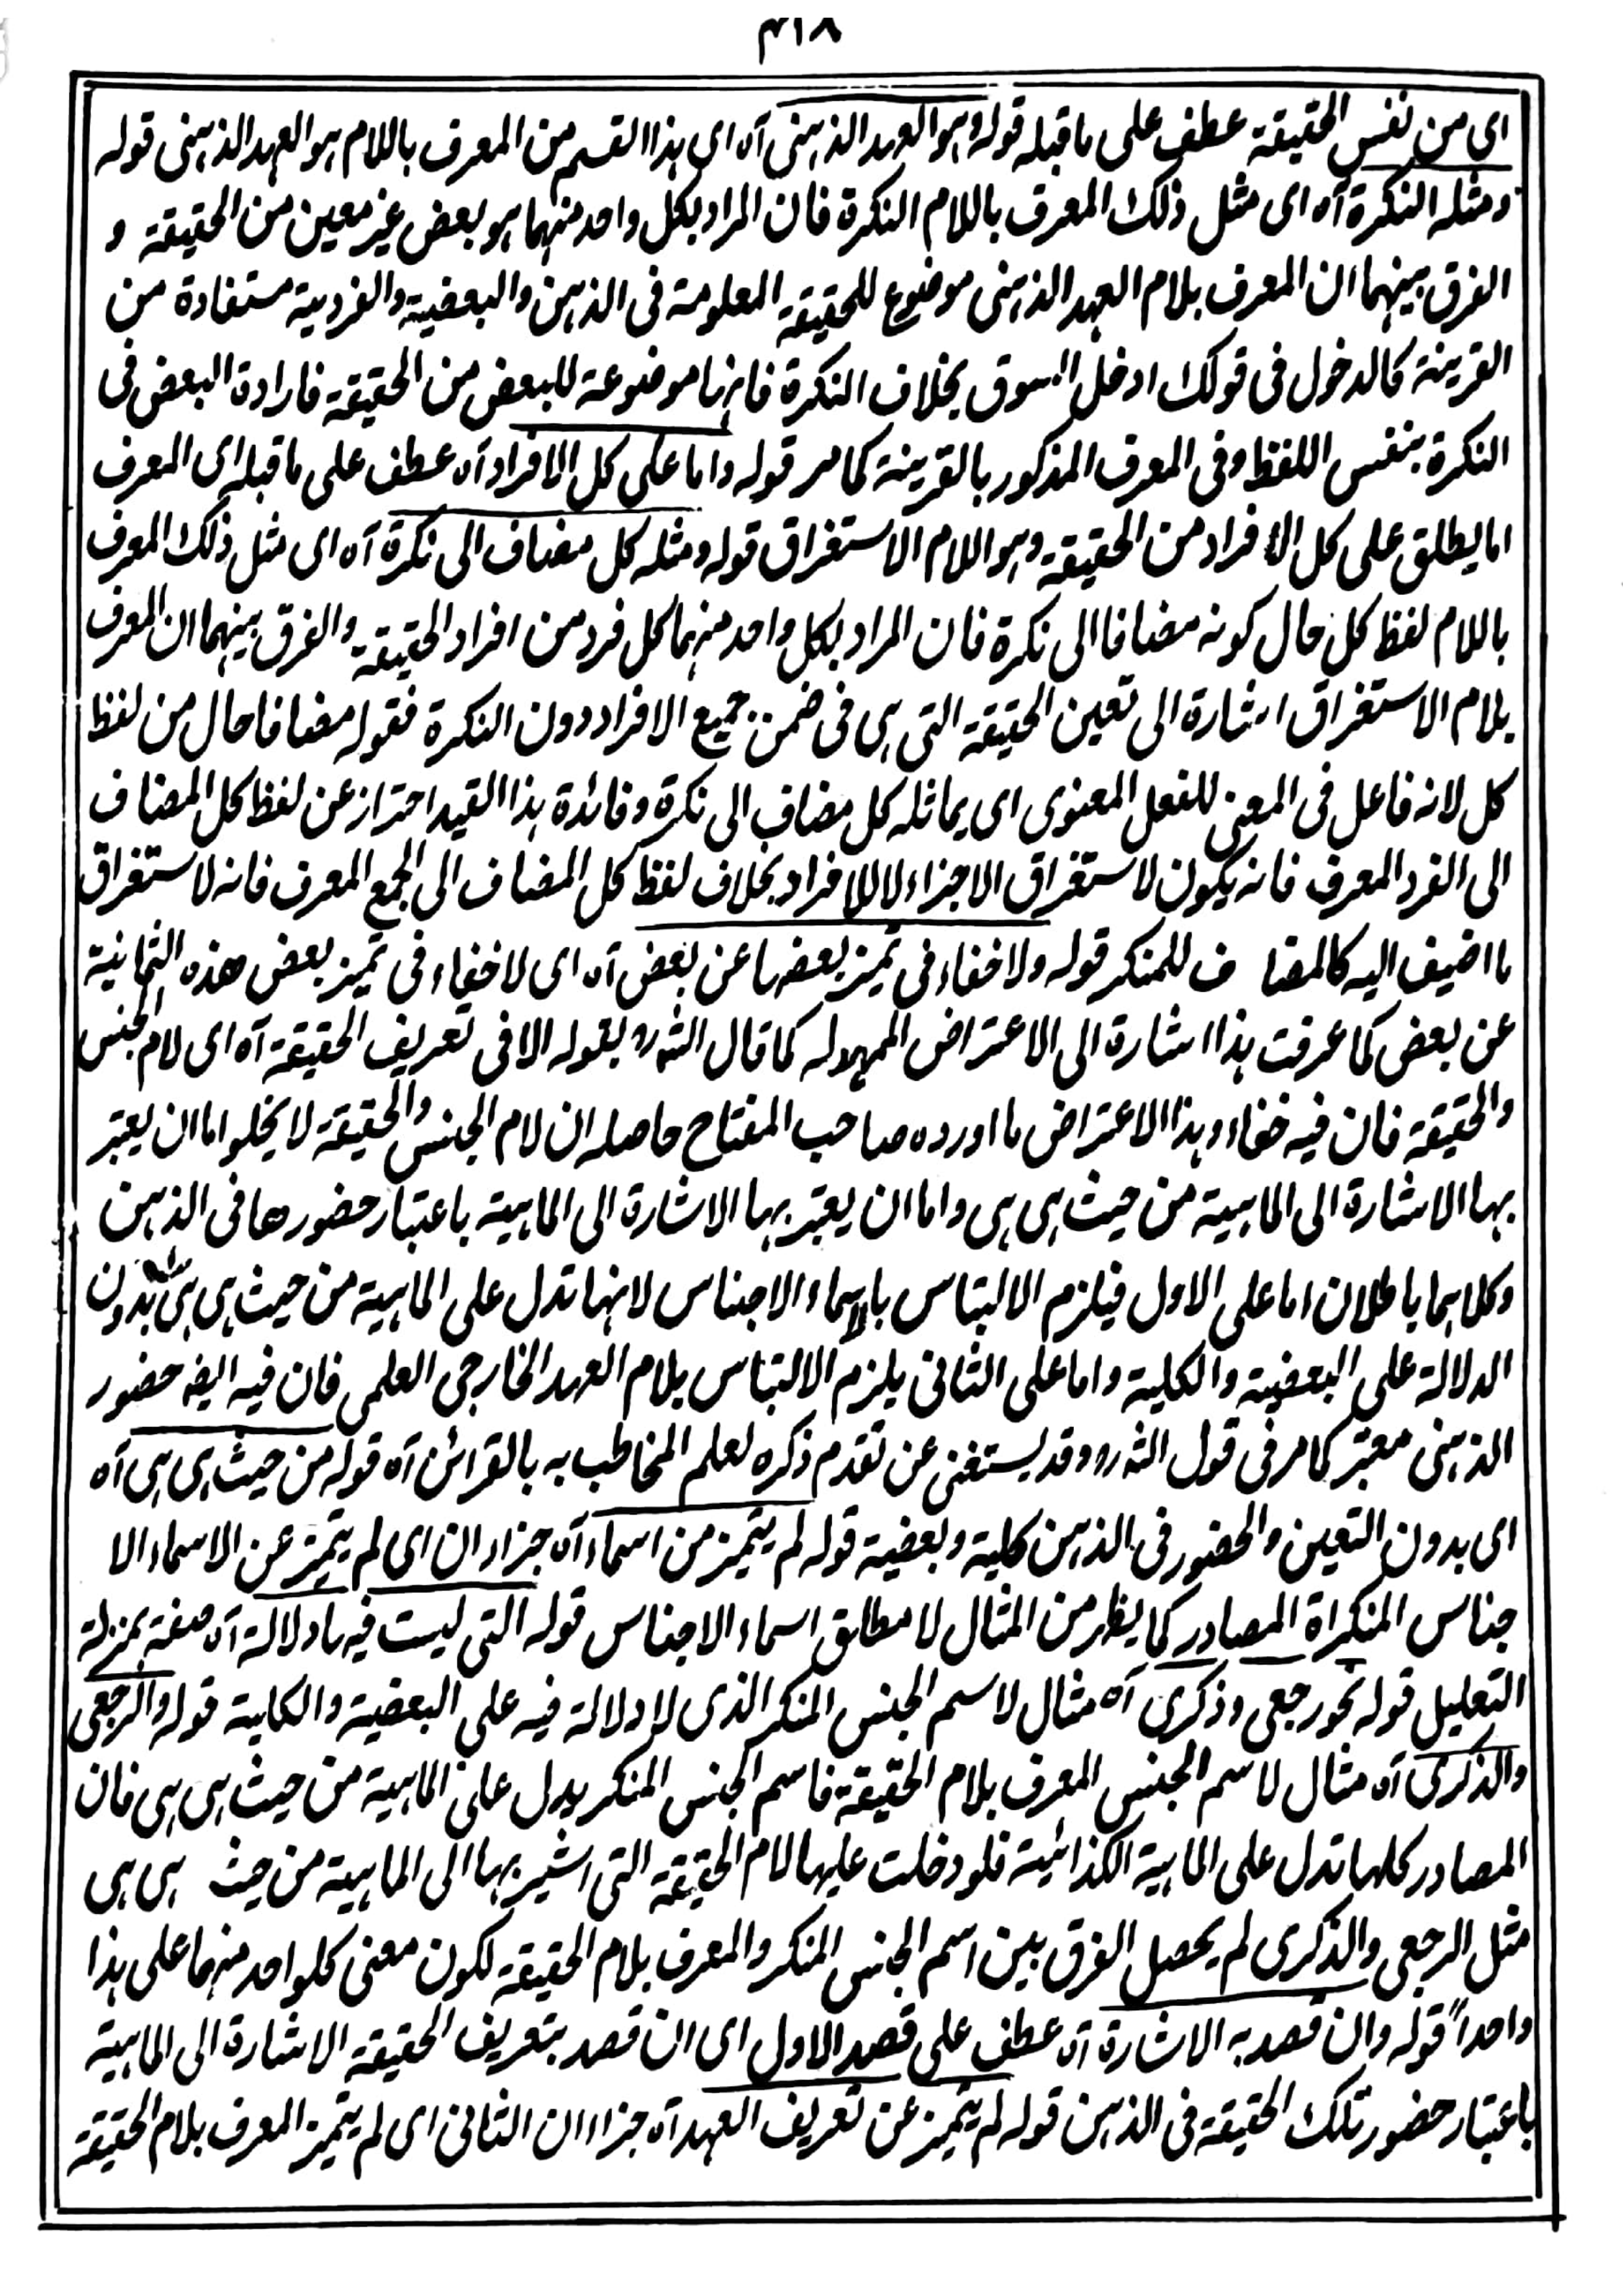 ۴۱۸
ای من نفس الحقیقة عطف علی ما قبله قوله وہو العہد الذہنی آہ ای ہذا القسم من المعرف باللام ہو العہد الذہنی قوله
ومثله النکرة آہ ای مثل ذلک المعرف باللام النکرة فان المراد بکل واحد منہما ہو بعض غیر معین من الحقیقة و
الفرق بینہما ان المعرف بلام العہد الذہنی موضوع للحقیقة المعلومة فی الذہن والبعضیة والفردیة مستفادة من
القرینة کالدخول فی قولک ادخل السوق بخلاف النکرة فانہا موضوعة للبعض من الحقیقة فارادة البعض فی
النکرة بنفس اللفظ وفی المعرف المذکور بالقرینة کما مر قوله واما علی کل الافراد آہ عطف علی ما قبله ای المعرف
اما یطلق علی کل الافراد من الحقیقة وہو اللام الاستغراق قوله ومثله کل مضاف الی نکرة آہ ای مثل ذلک المعرف
باللام لفظ کل حال کونه مضافا الی نکرة فان المراد بکل واحد منہما کل فرد من افراد الحقیقة والفرق بینہما ان المعرف
بلام الاستغراق اشارة الی تعین الحقیقة التی ہی فی ضمن جمیع الافراد دون النکرة فقوله مضافا حال من لفظ
کل لانه فاعل فی المعنی للفعل المعنوی ای یماثله کل مضاف الی نکرة وفائدة ہذا القید احتراز عن لفظ کل المضاف
الی الفرد المعرف فانه یکون لاستغراق الاجزاء لا للافراد بخلاف لفظ کل المضاف الی الجمع المعرف فانه لاستغراق
ما اضیف الیه کالمضاف للمنکر قوله ولا خفاء فی تمیز بعضہا عن بعض آہ ای لا خفاء فی تمیز بعض هذہ الثمانیة
عن بعض کما عرفت ہذا اشارة الی الاعتراض الممہد له کما قال الشرہ بقوله الا فی تعریف الحقیقة آہ ای لام الجنس
والحقیقة فان فیه خفاء وہذا الاعتراض ما اوردہ صاحب المفتاح حاصله ان لام الجنس والحقیقة لا یخلو اما ان یعتبر
بہا الاشارة الی الماہیة من حیث ہی ہی واما ان یعتبر بہا الاشارة الی الماہیة باعتبار حضورها فی الذہن
وکلاہما باطلان اما علی الاول فیلزم الالتباس بالاسماء الاجناس لانہا تدل علی الماہیة من حیث ہی ہی بدون
الدلالة علی البعضیة والکلیة واما علی الثانی یلزم الالتباس بلام العہد الخارجی العلمی فان فیه ایضہ حضور
الذہنی معتبر کما مر فی قول الشرہ وقد یستغنی عن تقدم ذکرہ لعلم المخاطب به بالقرائن آہ قوله من حیث ہی ہی آہ
ای بدون التعین والحضور فی الذہن کلیة وبعضیة قوله لم یتمیز من اسماء آہ جزاء ان ای لم یتمیز عن الاسماء الا
جناس المنکراة المصادر کما یظهر من المثال لا مطلق اسماء الاجناس قوله التی لیست فیہا دلالة آہ صفة بمنزلة
التعلیل قوله نحو رجعی وذکری آہ مثال لاسم الجنس المنکر الذی لا دلالة فیه علی البعضیة والکلیة قوله والرجعی
والذکری آہ مثال لاسم الجنس المعرف بلام الحقیقة فاسم الجنس المنکر یدل علی الماہیة من حیث ہی ہی فان
المصادر کلہا تدل علی الماہیة الکذائیة فلو دخلت علیہا لام الحقیقة التی اشیر بہا الی الماہیة من حیث ہی ہی
مثل الرجعی والذکری لم یحصل الفرق بین اسم الجنس المنکر والمعرف بلام الحقیقة لکون معنی کلواحد منہما علی ہذا
واحداً قوله وان قصد به الاشارة آہ عطف علی قصد الاول ای ان قصد بتعریف الحقیقة الاشارة الی الماہیة
باعتبار حضور تلک الحقیقة فی الذہن قوله لم یتمیز عن تعریف العہد آہ جزاء ان الثانی ای لم یتمیز المعرف بلام الحقیقة